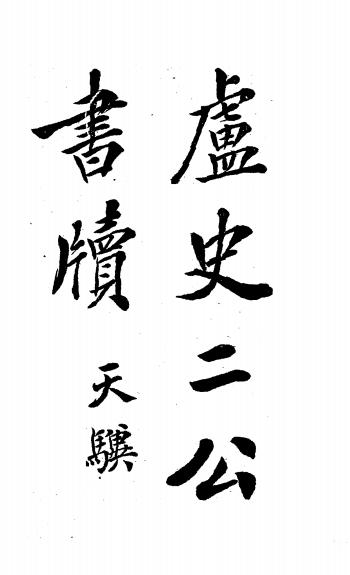 盧史二公
書牘
天驥